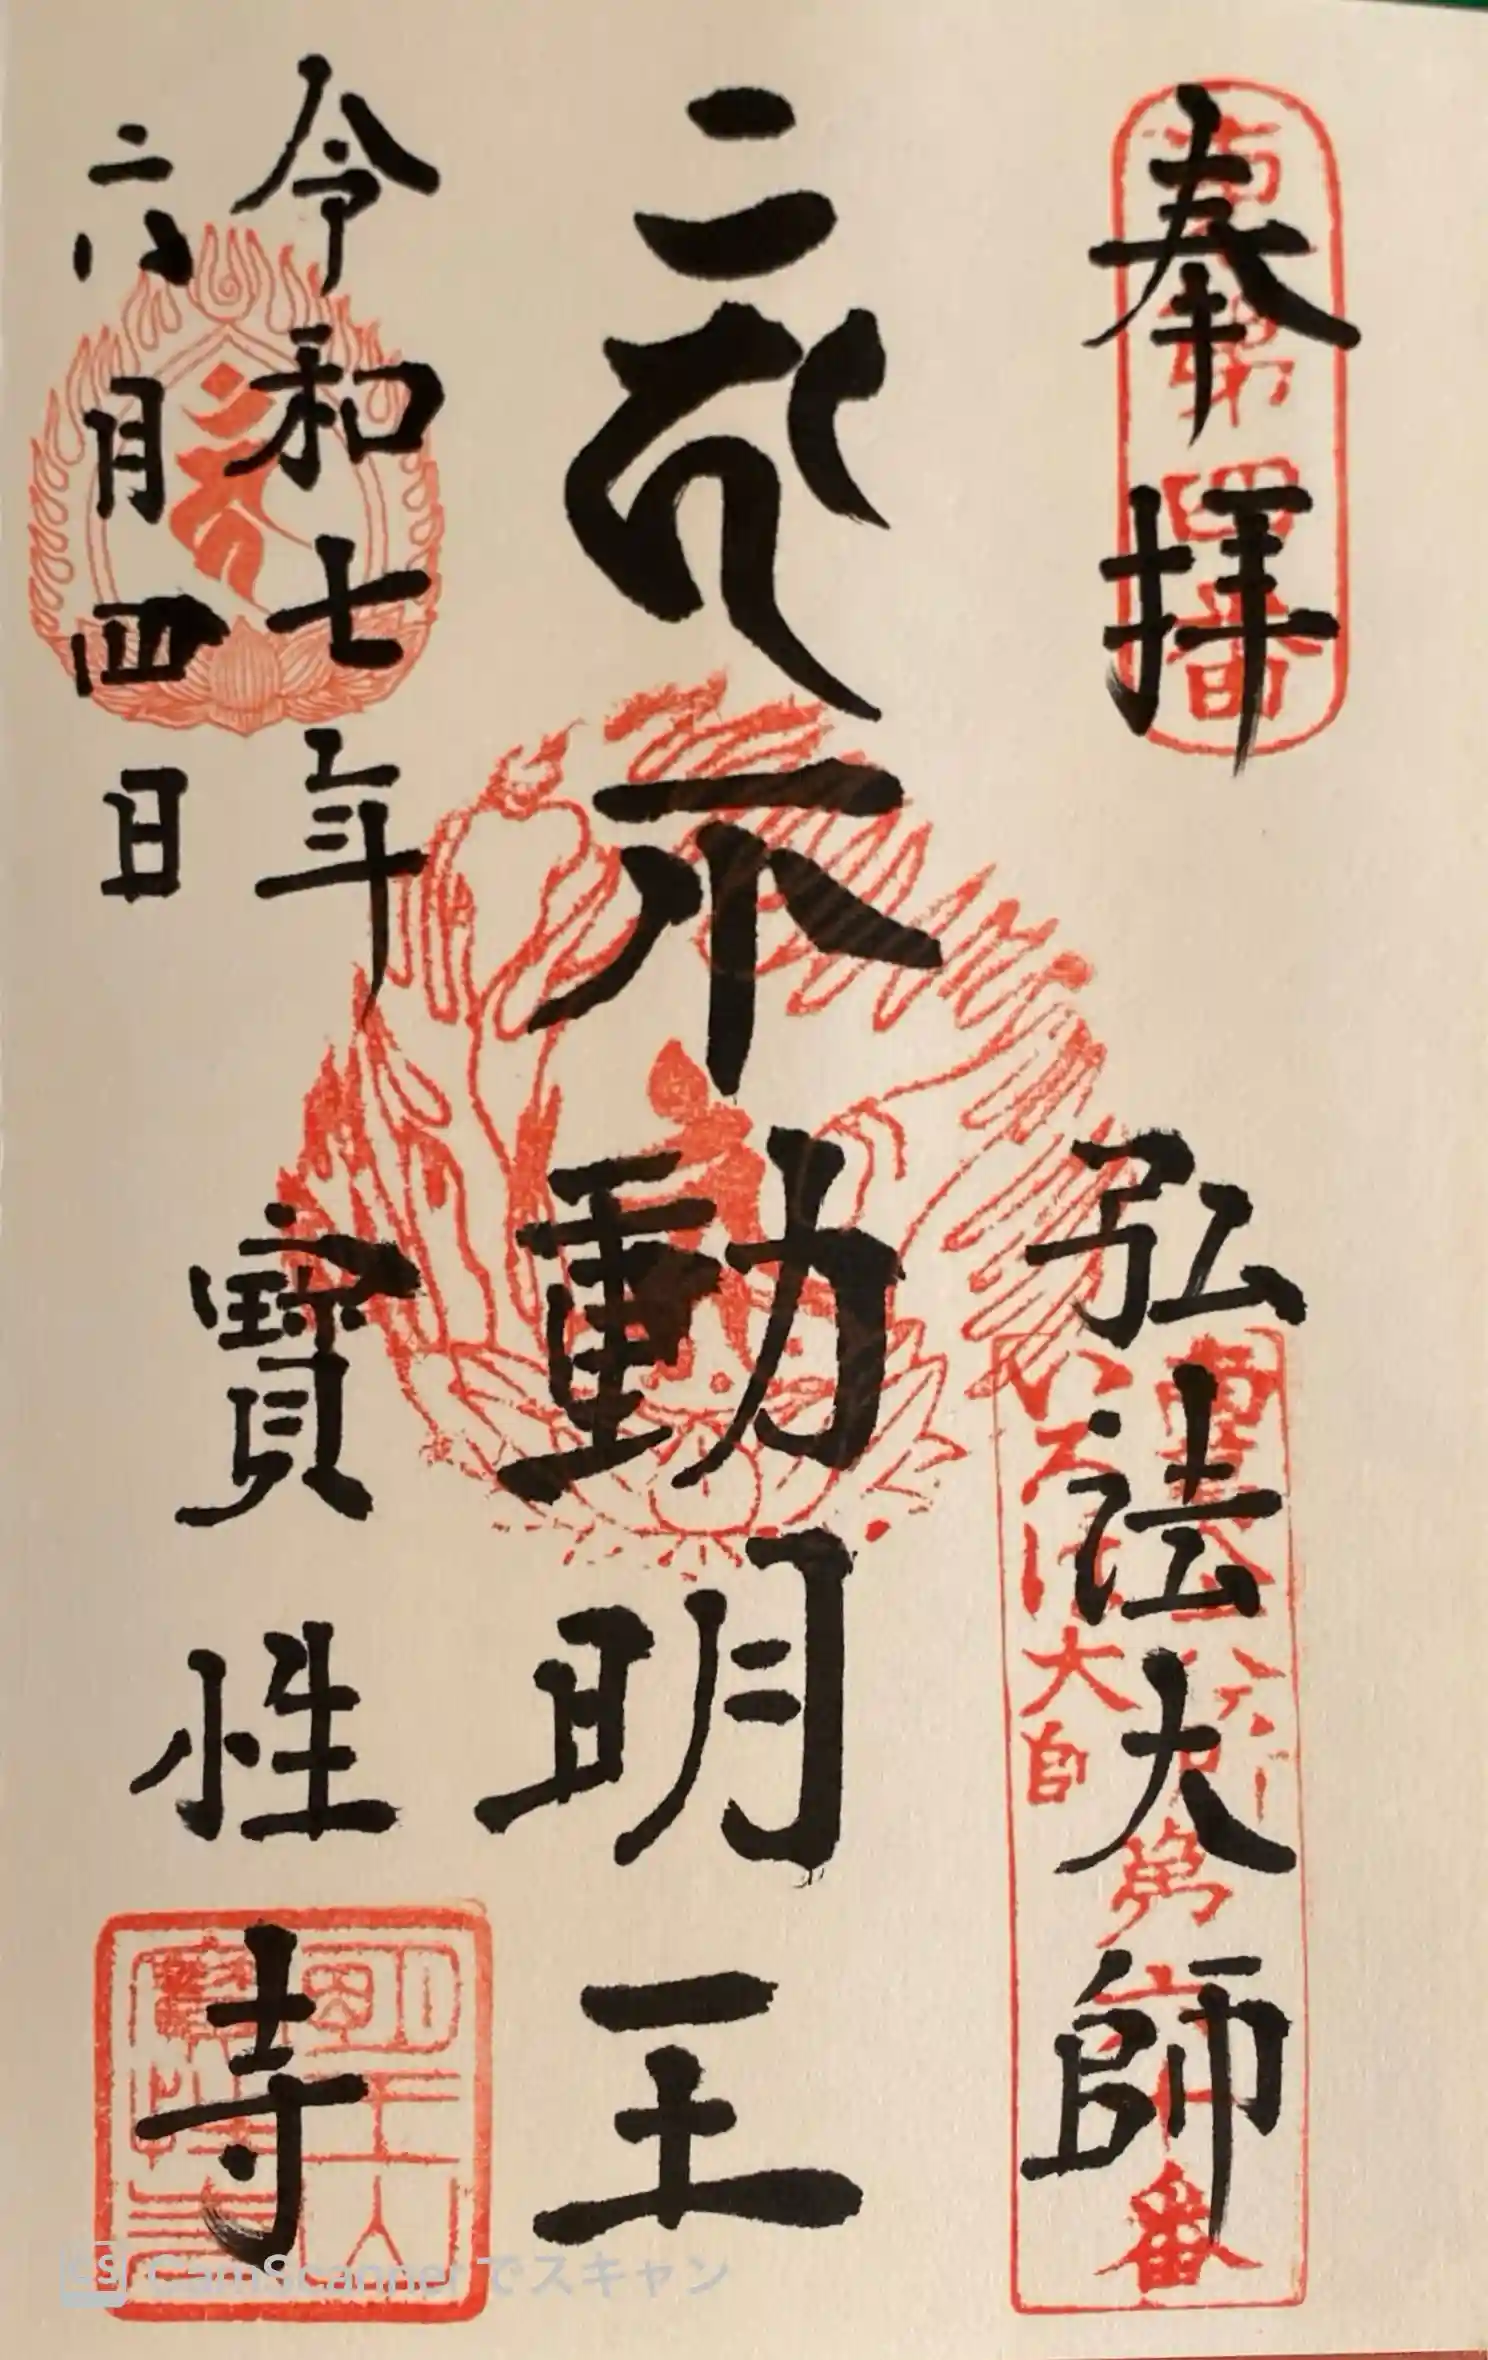 奉拝
弘法大師
第四番
いろは大師
第 番
不動明王
令和七年
六月四日
寶性寺
CamScannerでスキャン